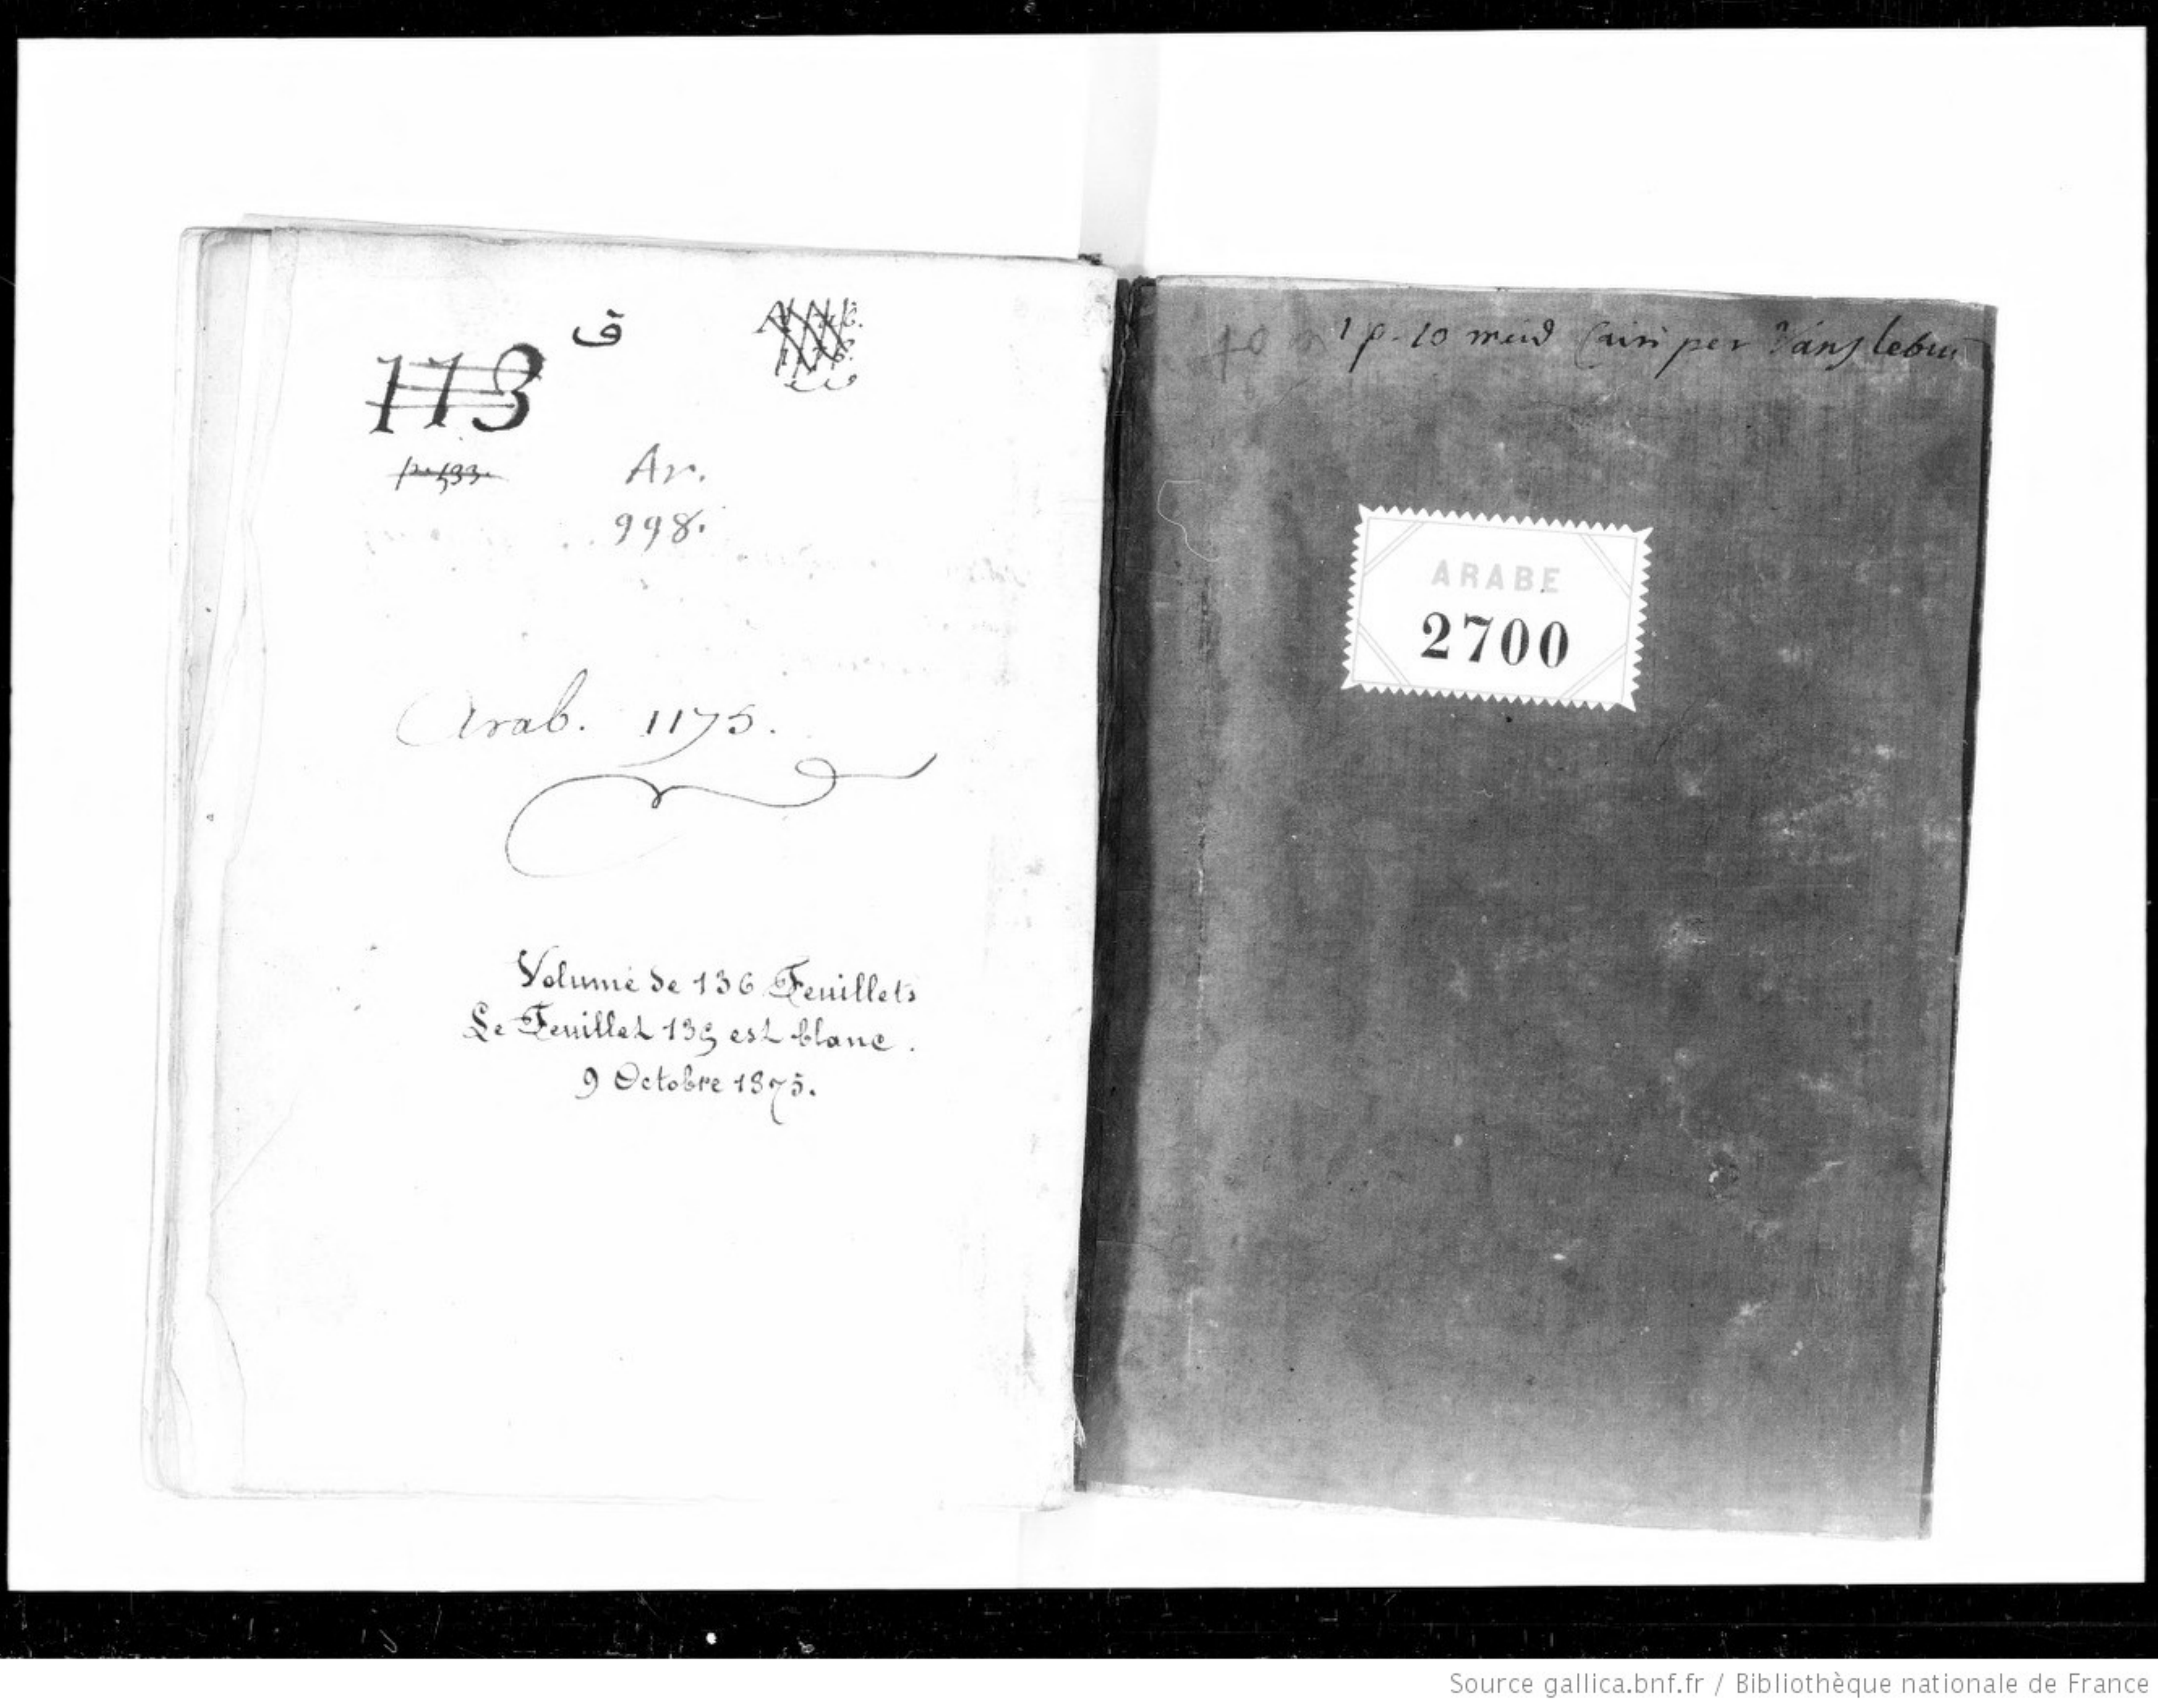 ق
113
p. 133.
Ar.
998.
Arab. 1175.
Volume de 136 Feuillets
Le Feuillet 135 est blanc.
9 Octobre 1875.
1 p. 10 meid Cairi per Vanslebium
ARABE
2700
Source gallica.bnf.fr / Bibliothèque nationale de France